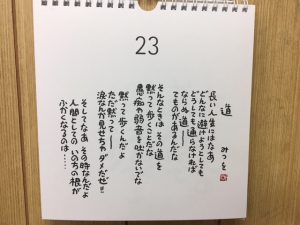 23
道
みつを
長い人生にはなあ
どんなに避けようとしても
どうしても通らなければ
ならぬ道――
てものがあるんだな
そんなときは その道を
黙って歩くことだな
愚痴や弱音を吐かないでな
黙って歩くんだよ
ただ黙って――
涙なんか見せちゃダメだぜ!!
そしてなあ その時なんだよ
人間としての いのちの根が
ふかくなるのは……